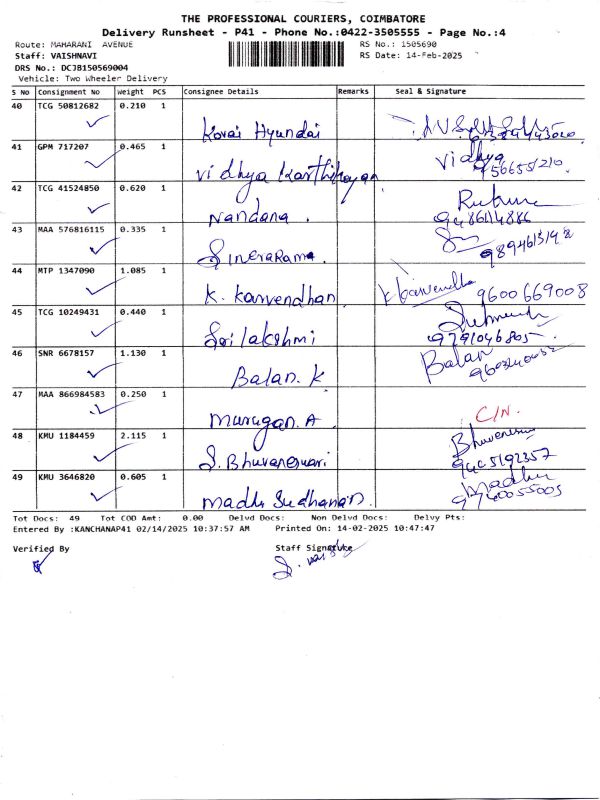 THE PROFESSIONAL COURIERS, COIMBATORE
Delivery Runsheet - P41 - Phone No.:0422-3505555 - Page No.:4
Route: MAHARANI AVENUE RS No.: 1505690
Staff: VAISHNAVI RS Date: 14-Feb-2025
DRS No.: DC3B150569004
Vehicle: Two Wheeler Delivery
S No Consignment No Weight PCS Consignee Details Remarks Seal & Signature
40 TCG 50812682 0.210 1
Kovai Hyundai
41 GPM 717207 0.465 1 Vidhya
Vidhya Karthikeyan
42 TCG 41524850 0.620 1
Nandana .
43 MAA 576816115 0.335 1
44 MTP 1347090 1.085 1
K. Karvendhan 9600669008
45 TCG 10249431 0.440 1
Sri lakshmi 9791046805
46 SNR 6678157 1.130 1 Balan
Balan. K
47 MAA 866984583 0.250 1 C/N.
Murugan. A
48 KMU 1184459 2.115 1
S. Bhuvaneswari
49 KMU 3646820 0.605 1 Madhu
Madhu Sudhanan
Tot Docs: 49 Tot COD Amt: 0.00 Delvd Docs: Non Delvd Docs: Delvy Pts:
Entered By :KANCHANAP41 02/14/2025 10:37:57 AM Printed On: 14-02-2025 10:47:47
Verified By Staff Signature